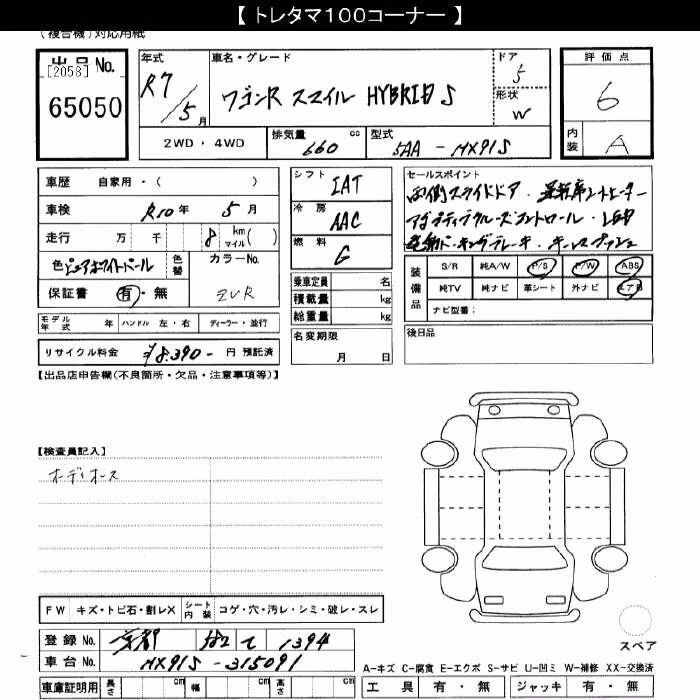 【トレタマ100コーナー】
(複合機)対応用紙
出品No.
[2058]
65050
年式
R7/5月
車名・グレード
ワゴンR スマイル HYBRID S
ドア
5
形状
W
評価点
6
内装
A
2WD・4WD
排気量
660
cc
型式
5AA - MX91S
車歴 自家用・( )
車検 R10年 5月
走行 万 千 8 km マイル( )
色 ピュアホワイトパール
色替
カラーNo.
ZVR
保証書 有・無
シフト
IAT
冷房
AAC
燃料
G
乗車定員 名
積載量 kg
総重量 kg
セールスポイント
両側スライドドア・運転席シートヒーター
アダプティブクルーズコントロール・LED
電動パーキングブレーキ・キーレスプッシュ
装備品
S/R 純A/W P/S P/W ABS
純TV 純ナビ 革シート 外ナビ エアB
ナビ型番:
モデル年式 年 ハンドル 左・右 ディーラー・並行
名変期限
月 日
後日品
リサイクル料金 ¥8,390- 円 預託済
【出品店申告欄(不良箇所・欠品・注意事項等)】
【検査員記入】
オーディオレス
FW キズ・トビ石・割レX シート内装 コゲ・穴・汚レ・シミ・破レ・スレ
登録No. 京都 て 1394
車台No. MX91S - 315091
車庫証明用 長さ cm 幅 cm 高さ cm
スペア
A-キズ C-腐食 E-エクボ S-サビ U-凹ミ W-補修 XX-交換済
工具 有・無 ジャッキ 有・無